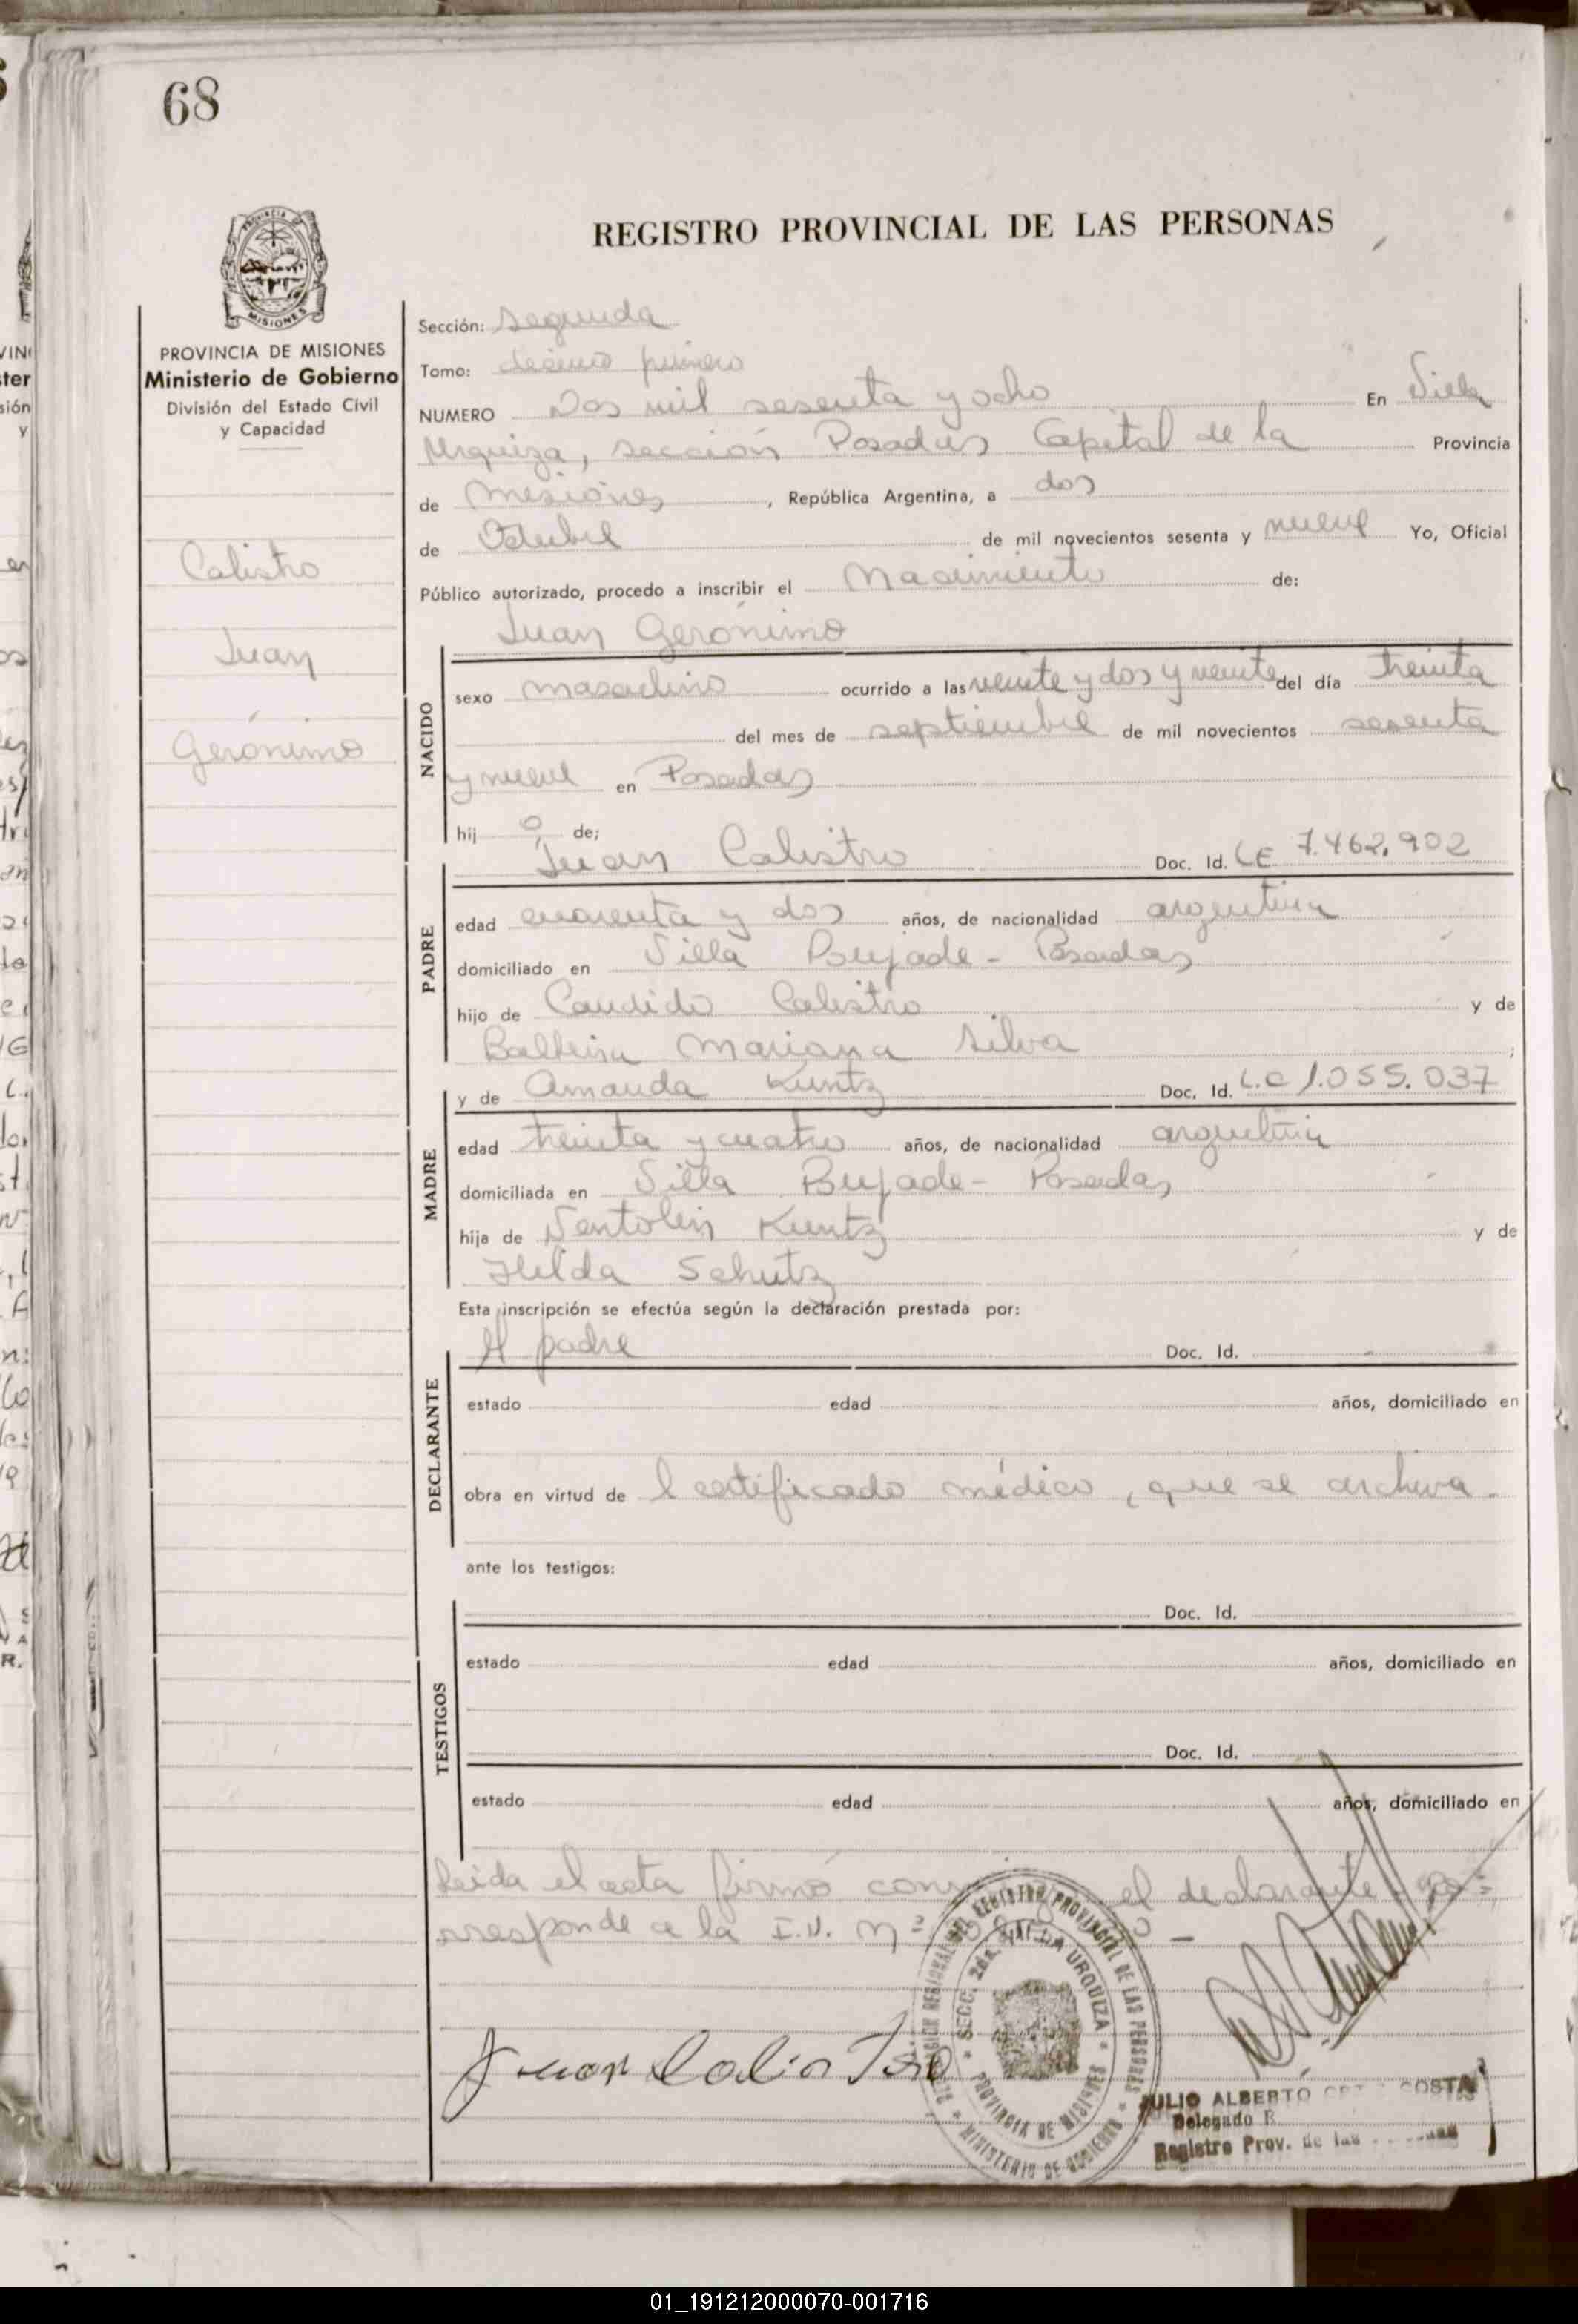 68
REGISTRO PROVINCIAL DE LAS PERSONAS
MISIONES
PROVINCIA DE MISIONES
Ministerio de Gobierno
División del Estado Civil
y Capacidad
Calistro
Juan
Gerónimo
Sección: Segunda
Tomo: décimo primero
NUMERO Dos mil sesenta y ocho En Villa
Urquiza, sección Posadas Capital de la Provincia
de Misiones, República Argentina, a dos
de Octubre de mil novecientos sesenta y nueve Yo, Oficial
Público autorizado, procedo a inscribir el Nacimiento de:
Juan Gerónimo
NACIDO
sexo masculino ocurrido a las veinte y dos y veinte del día treinta
del mes de septiembre de mil novecientos sesenta
y nueve en Posadas
hij o de;
Juan Calistro Doc. Id. LE 7.462.902
PADRE
edad cuarenta y dos años, de nacionalidad argentina
domiciliado en Villa Pujade - Posadas
hijo de Candido Calistro y de
Mariana Silva;
y de Amanda Kuntz Doc. Id. L.C 1.055.037
MADRE
edad treinta y cuatro años, de nacionalidad argentina
domiciliada en Villa Bujade - Posadas
hija de Ventolin Kuntz y de
Hilda Schutz
Esta inscripción se efectúa según la declaración prestada por:
El padre Doc. Id.
DECLARANTE
estado edad años, domiciliado en
obra en virtud de l certificado médico, que se archiva.
ante los testigos:
Doc. Id.
TESTIGOS
estado edad años, domiciliado en
Doc. Id.
estado edad años, domiciliado en
Leida el acta firmó el declarante
rresponde a la I.N. Nº
Juan Calistro
REGISTRO PROVINCIAL DE LAS PERSONAS
MINISTERIO DE GOBIERNO
SECC. 2da. VILLA URQUIZA
PROVINCIA DE MISIONES
JULIO ALBERTO COSTA
Delegado
Registro Prov. de las
01_191212000070-001716